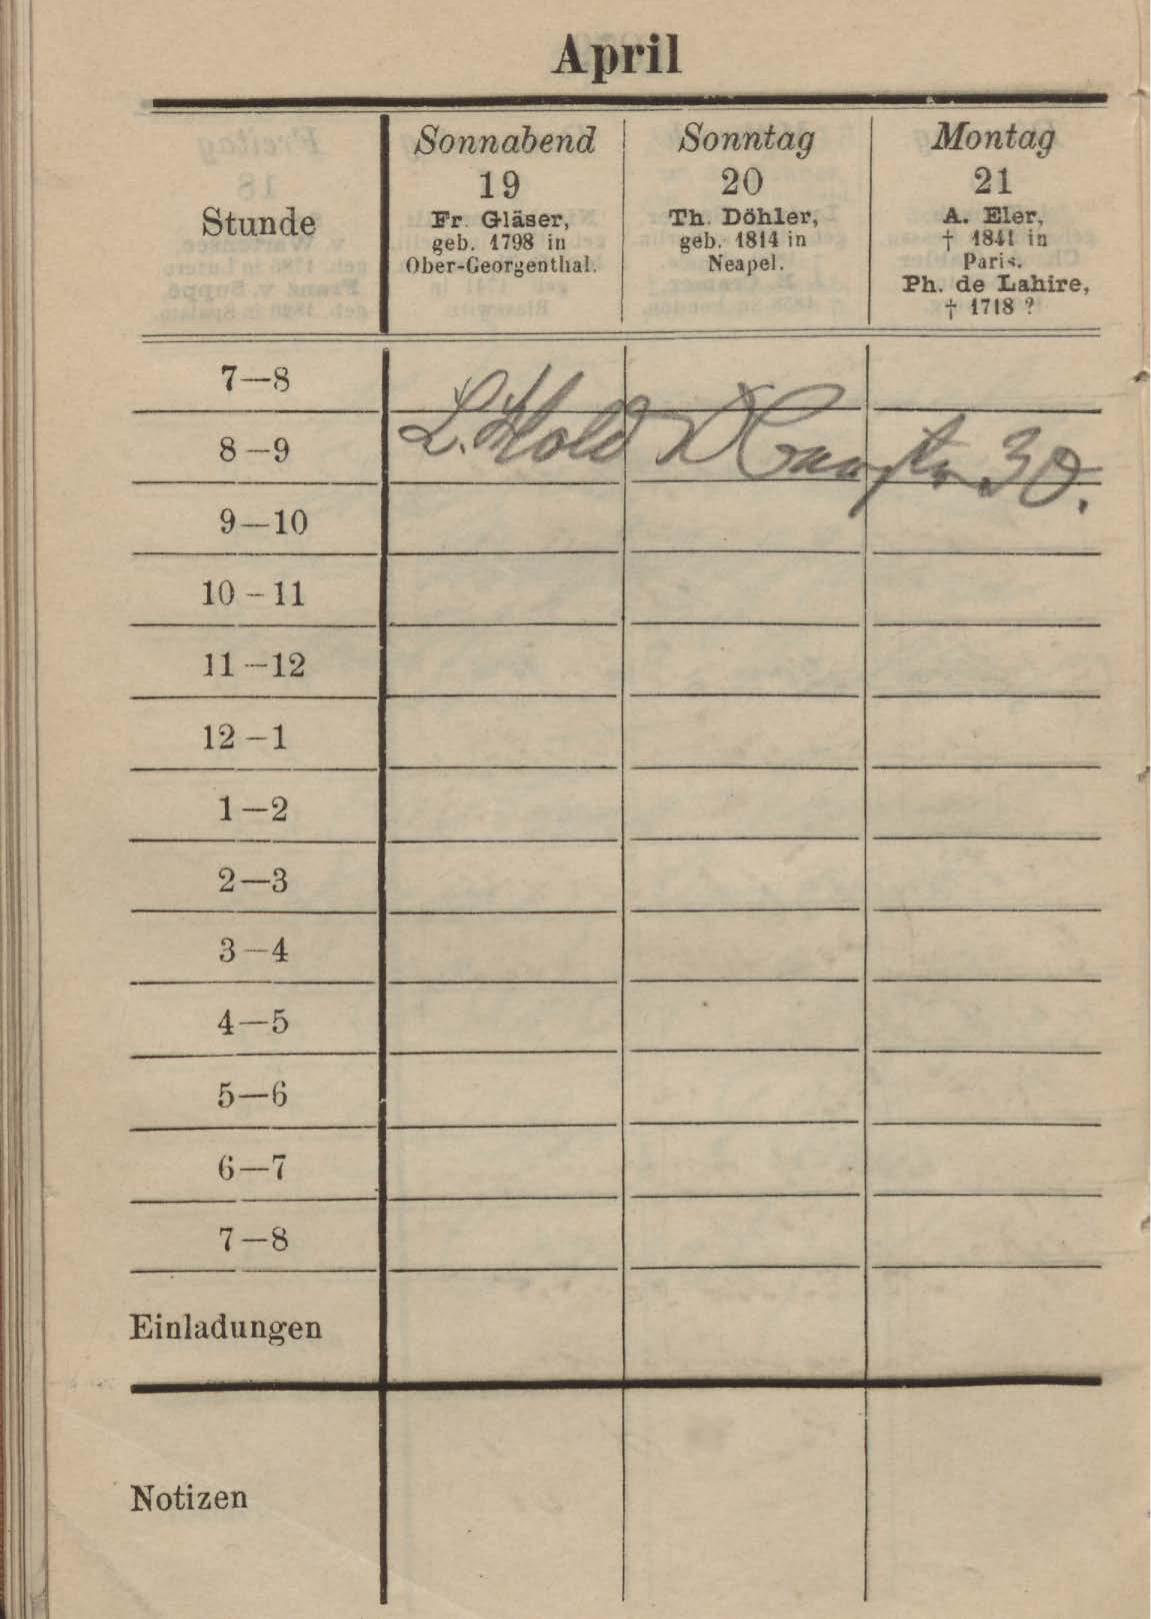 April
Stunde
Sonnabend
19
Fr. Gläser,
geb. 1798 in
Ober-Georgenthal.
Sonntag
20
Th. Döhler,
geb. 1814 in
Neapel.
Montag
21
A. Eler,
† 1841 in
Paris.
Ph. de Lahire,
† 1718 ?
7—8
8—9
L. Hold 30.
9—10
10—11
11—12
12—1
1—2
2—3
3—4
4—5
5—6
6—7
7—8
Einladungen
Notizen